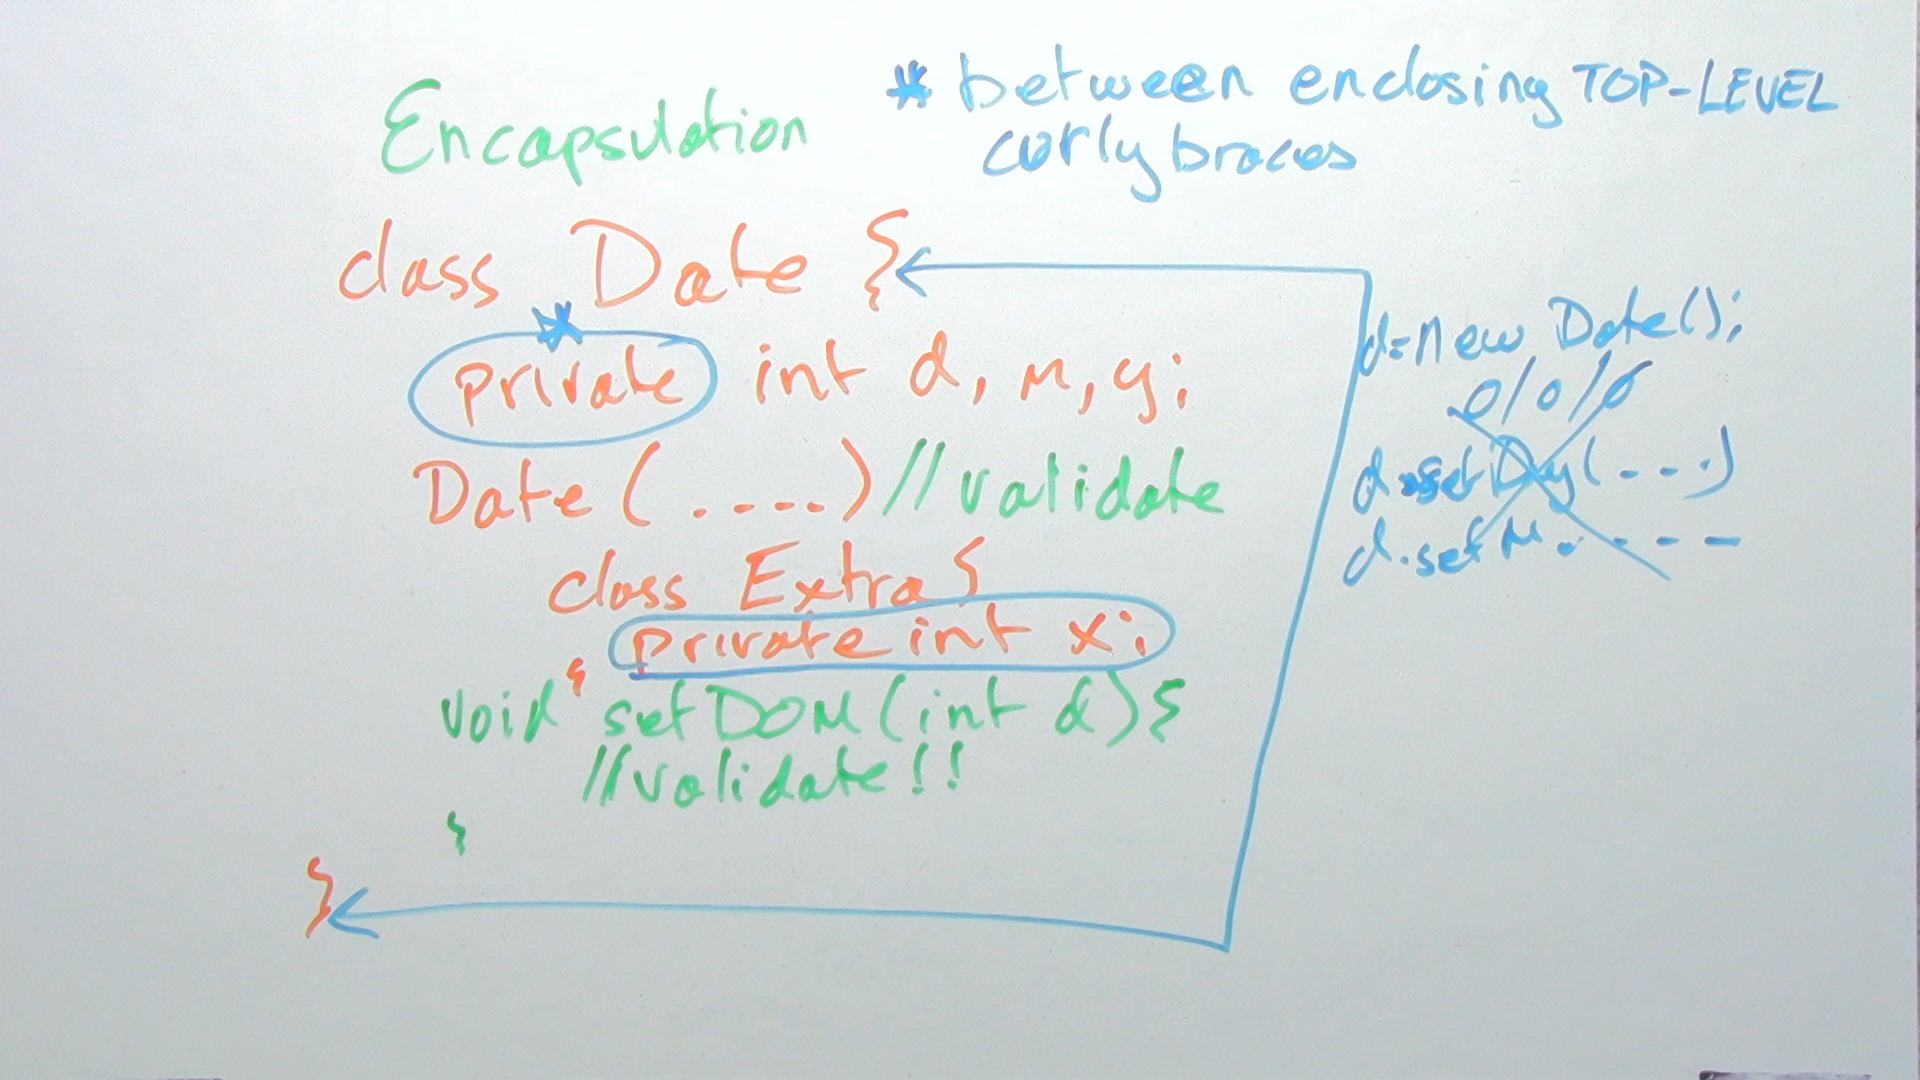 Encapsulation
* between enclosing TOP-LEVEL
curly braces
class Date {
* private int d, m, y;
Date (....) //validate
class Extra {
private int x;
}
void setDOM (int d) {
//validate!!
}
}
d=new Date();
0/0/0
d.setDay(...)
d.setM.....